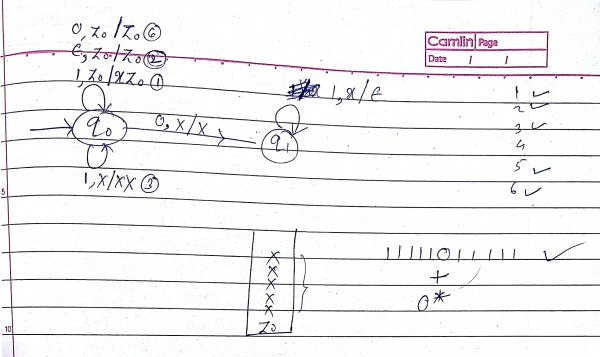 0, Z0 / Z0 ⑥
ϵ, Z0 / Z0 ②
1, Z0 / XZ0 ①
Camlin Page
Date / /
1, X / ϵ
q0
0, X/X
q1
1, X/XX ③
1 ✓
2 ✓
3 ✓
4
5 ✓
6 ✓
5
X
X
X
X
X
Z0
11111011111 ✓
+
0*
10